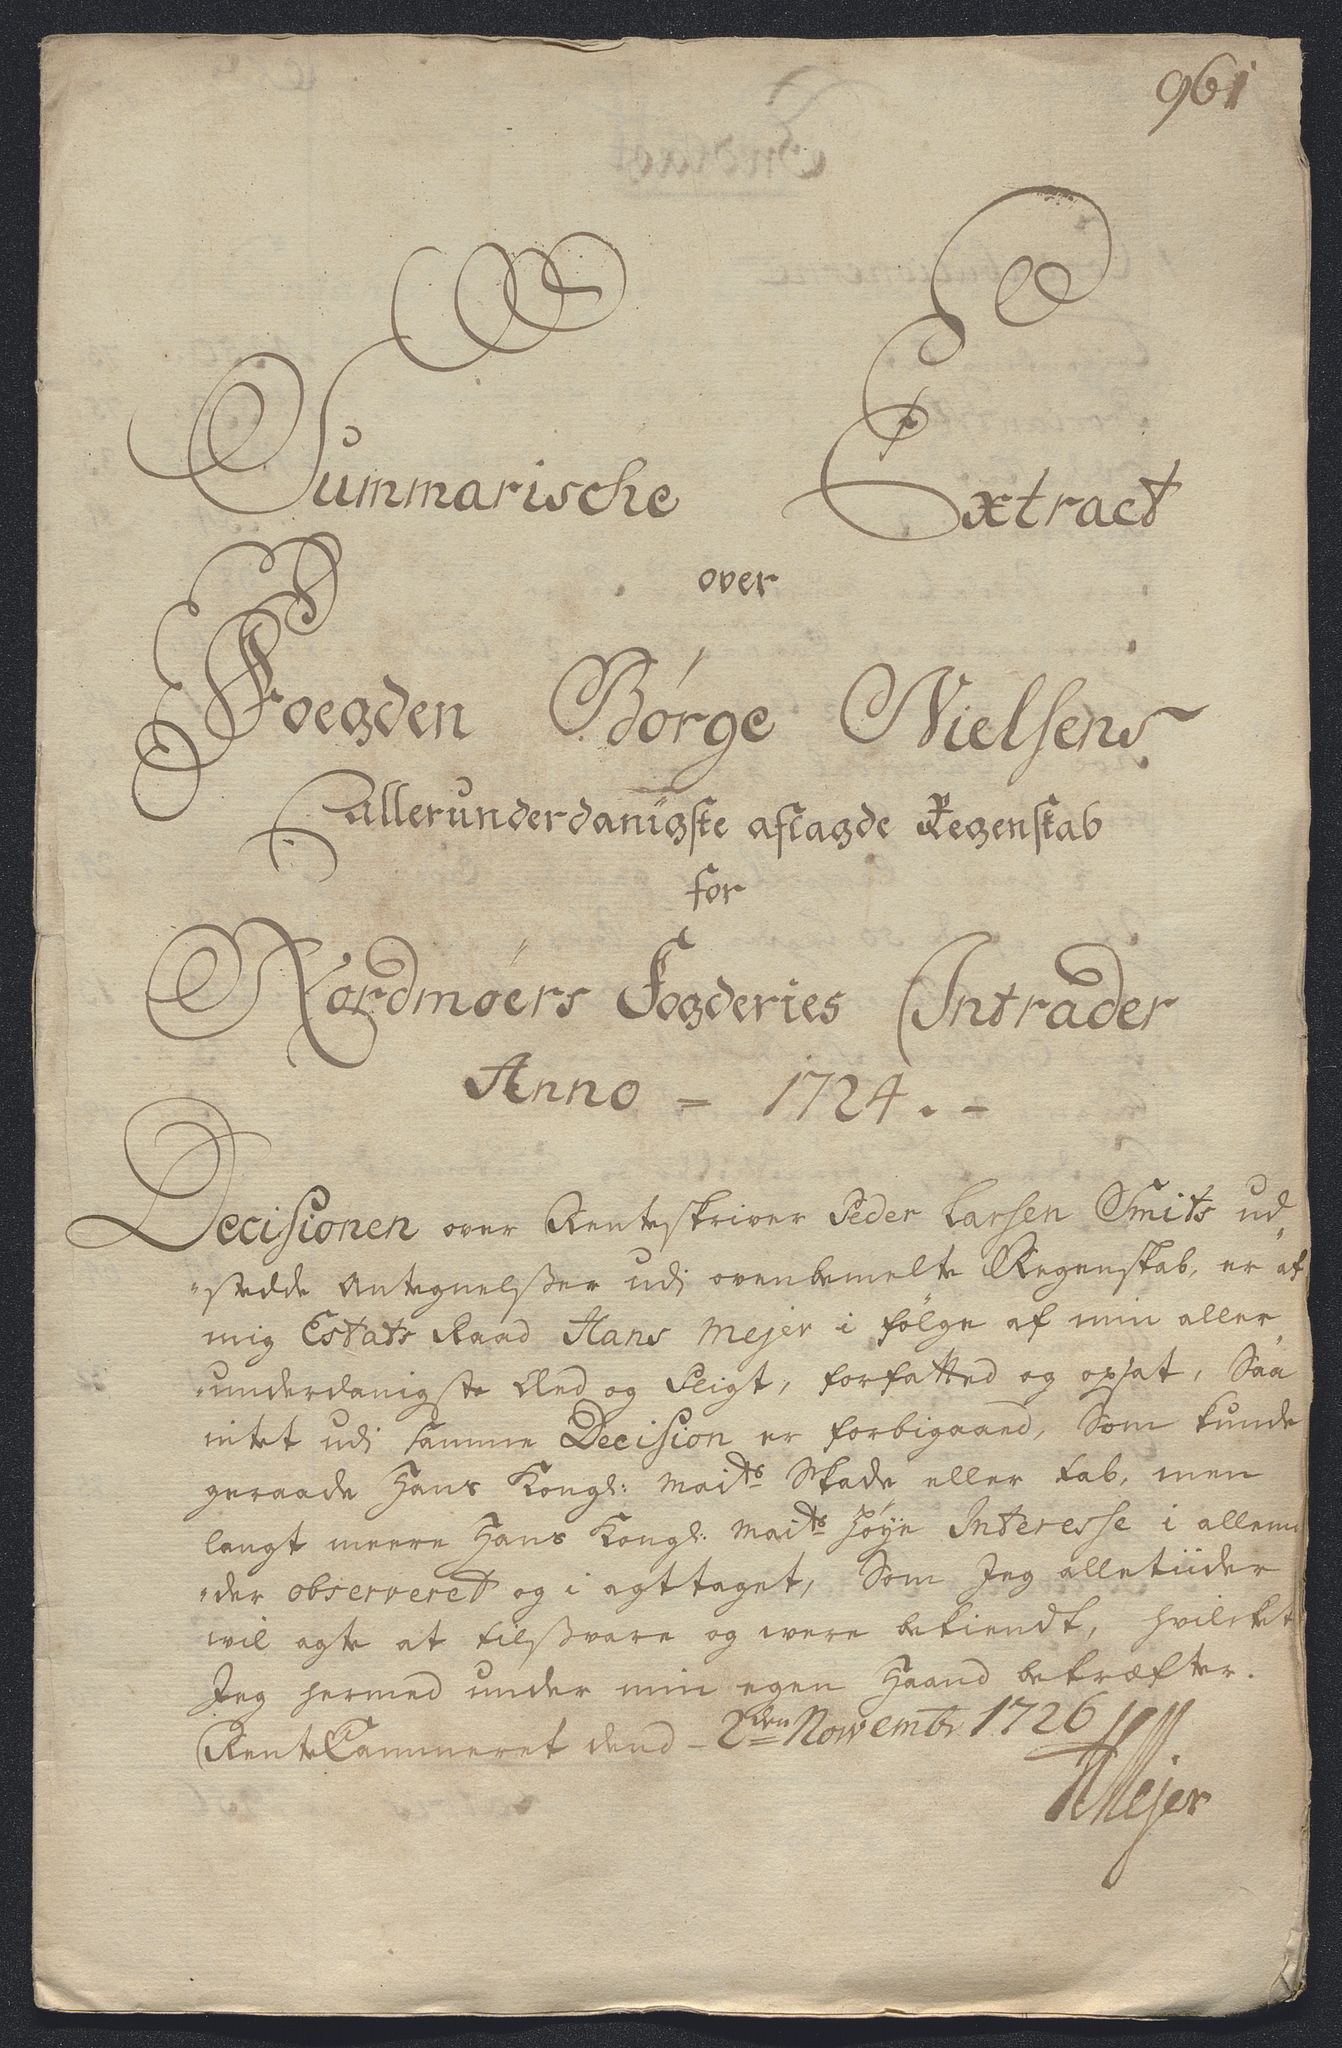 961
Summarische Extract
over
Foegden Børge Nielsens
allerunderdanigste aflagde Regenskab
for
Nordmøers Fogderies Intrader
Anno - 1724. -
Decisionen over Renteskriver Peder Larsen Smits ud„
„stedde Antegnelsser udj ovenbemelte Regenskab, er af
mig Estats Raad Hans Mejer i følge af min aller„
„underdanigste Eed og Pligt, forfatted og opsat, Saa
intet udj samme Decision er forbigaaed, Som kunde
geraade Hans Kongl: Maits Skade eller tab, men
langt meere Hans Kongl: Maits høÿe Interesse i allem
„der observeret og i agttaget, Som Jeg alletiider
vil agte at tilsvare og were bekiendt, hvilcket
Jeg hermed under min egen Haand bekræfter.
RenteCammeret dend - 2den Novembr 1726
HMejer